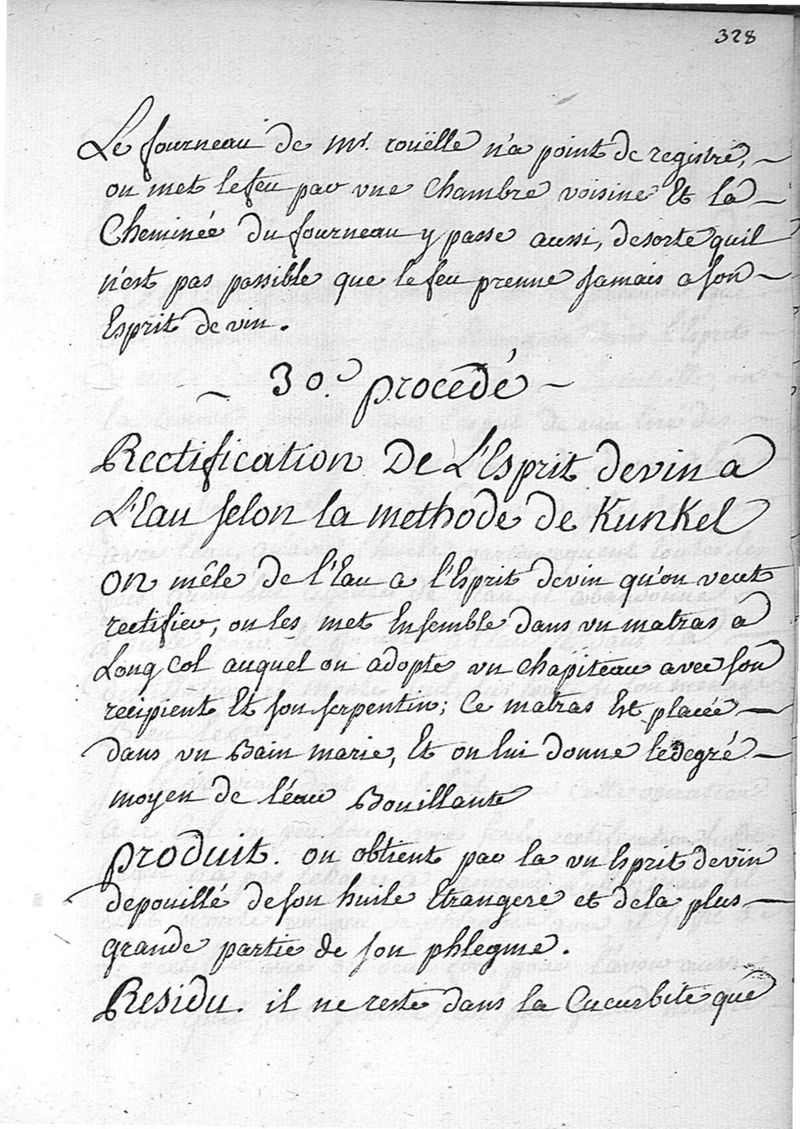 328
Le fourneau de mr. rouëlle n'a point de registre,
on met le feu par vne chambre voisine Et la
Cheminée du fourneau y passe aussi, desorte quil
n'est pas possible que le feu prenne Jamais a son
Esprit de vin.
30.e procedé
Rectification De L'Esprit devin a
L'Eau selon la methode de Kunkel
On mêle de l'Eau a l'Esprit devin qu'on veut
rectifier, on les met Ensemble dans vn matras a
Long Col auquel on adopte vn chapiteau avec son
recipient Et son serpentin; Ce matras Est placée
dans vn Bain marie, Et on lui donne le degré
moyen de l'éau Bouillante
produit. on obtient par la vn Esprit de vin
depouillé de son huile Etrangere et dela plus
grande partie de son phlegme.
Residu. il ne reste dans la Cucurbite que